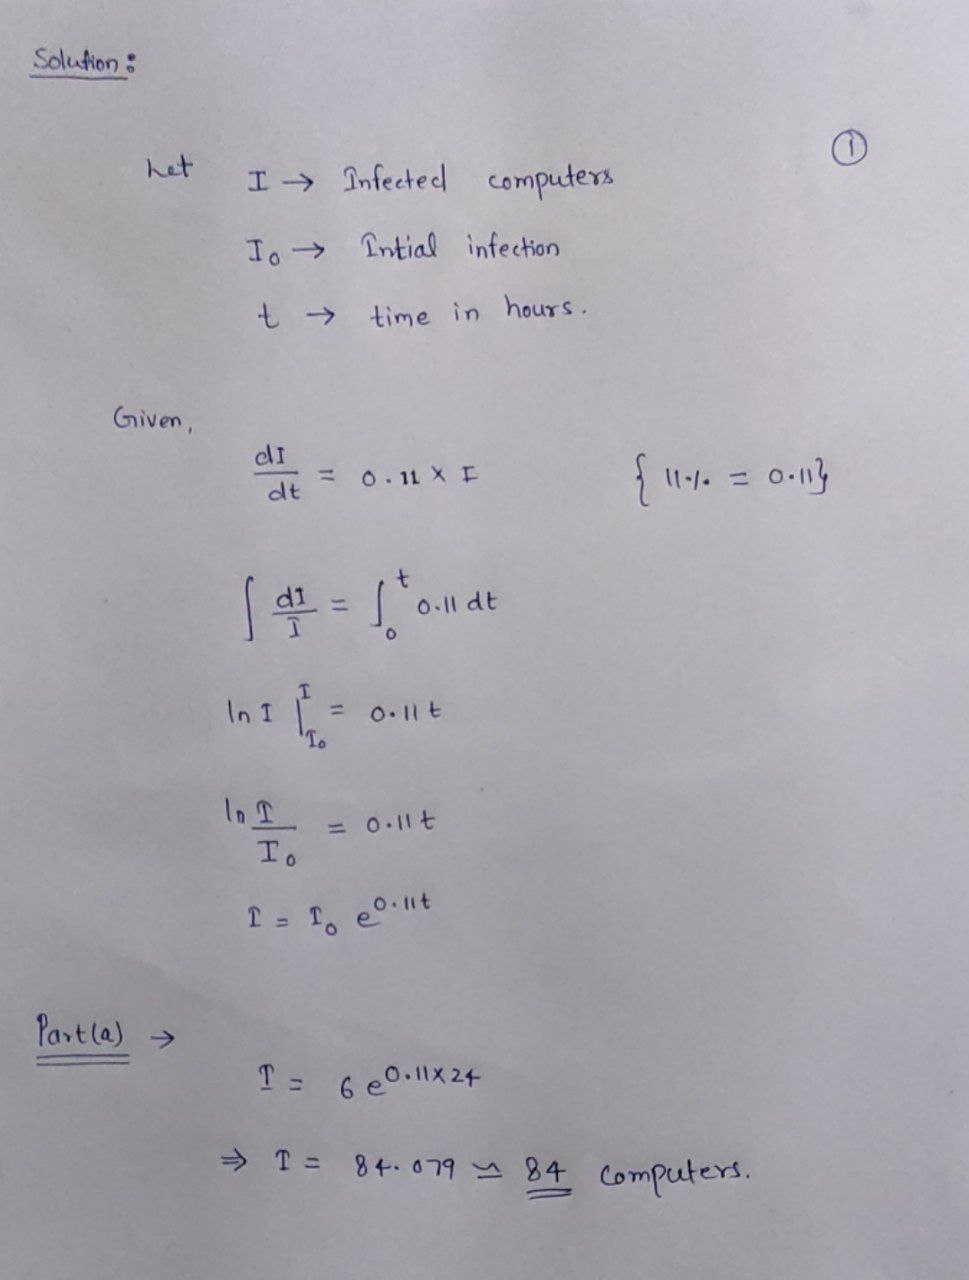 Solution :
①
Let I → Infected computers
I₀ → Intial infection
t → time in hours.
Given,
dI/dt = 0.11 × I { 11% = 0.11}
∫ dI/I = ∫₀ᵗ 0.11 dt
ln I |_I₀^I = 0.11 t
ln I/I₀ = 0.11 t
I = I₀ e^0.11t
Part(a) →
I = 6 e^0.11×24
⇒ I = 84.079 ≃ 84 computers.